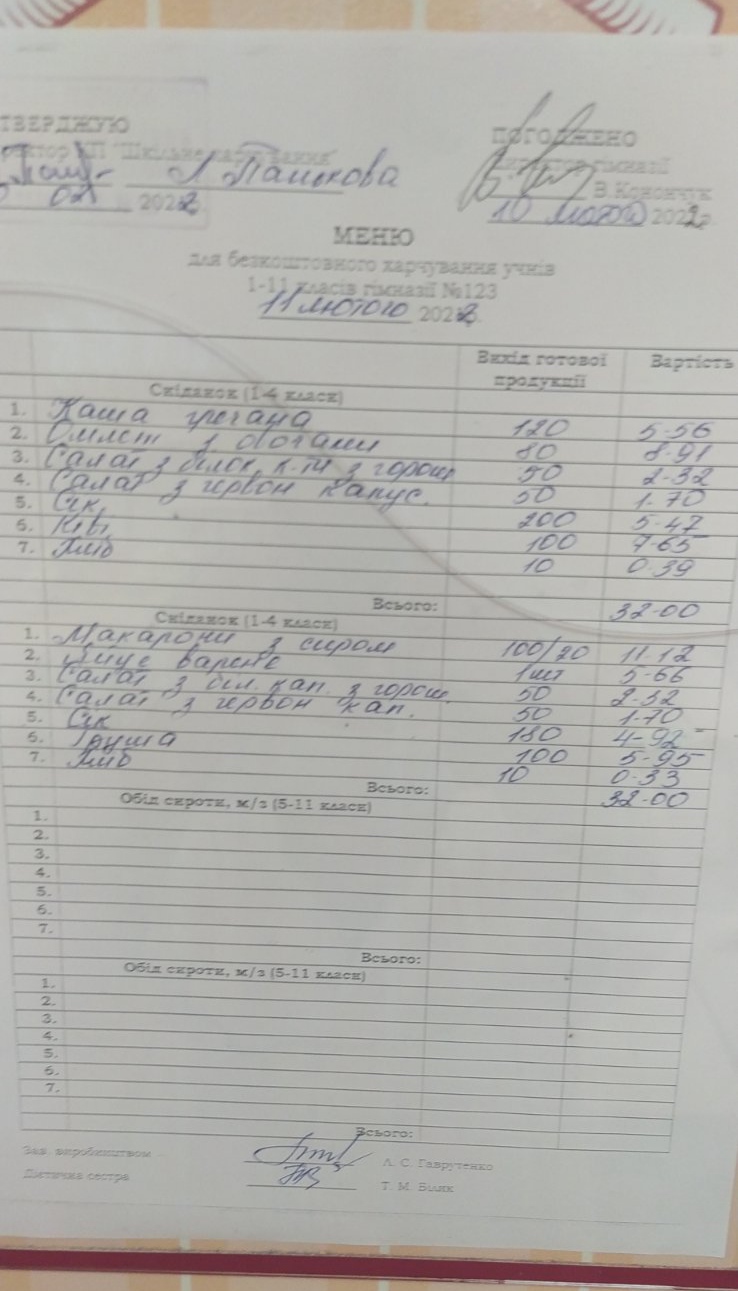 ТВЕРДЖУЮ
ПОГОДЖЕНО
ректор КП "Шкільне харчування"
Директор гімназії
Л Панькова
В.Конончук
02 2022
10 лютого 2022р.
МЕНЮ
для безкоштовного харчування учнів
1-11 класів гімназії №123
11 лютого 2022.
Вихід готової продукції Вартість
Сніданок (1-4 класи)
1. Каша гречана 120 5-56
2. Омлет з овочами 80 8-91
3. Салат з білок. к-ти з горош 50 2-32
4. Салат з червон капус. 50 1-70
5. Сік 200 5-47
6. Ківі 100 7-65
7. Хліб 10 0-39
Всього: 32-00
Сніданок (1-4 класи)
1. Макарони з сиром 100/20 11-12
2. Яйце варене 1шт 5-66
3. Салат з біл. кап. з горош. 50 2-32
4. Салат з червон кап. 50 1-70
5. Сік 180 4-92
6. Груша 100 5-95
7. Хліб 10 0-33
Всього: 32-00
Обід сироти, м/з (5-11 класи)
1.
2.
3.
4.
5.
6.
7.
Всього:
Обід сироти, м/з (5-11 класи)
1.
2.
3.
4.
5.
6.
7.
Всього:
Зав. виробництвом Л. С. Гаврутенко
Дієтична сестра Т. М. Білик